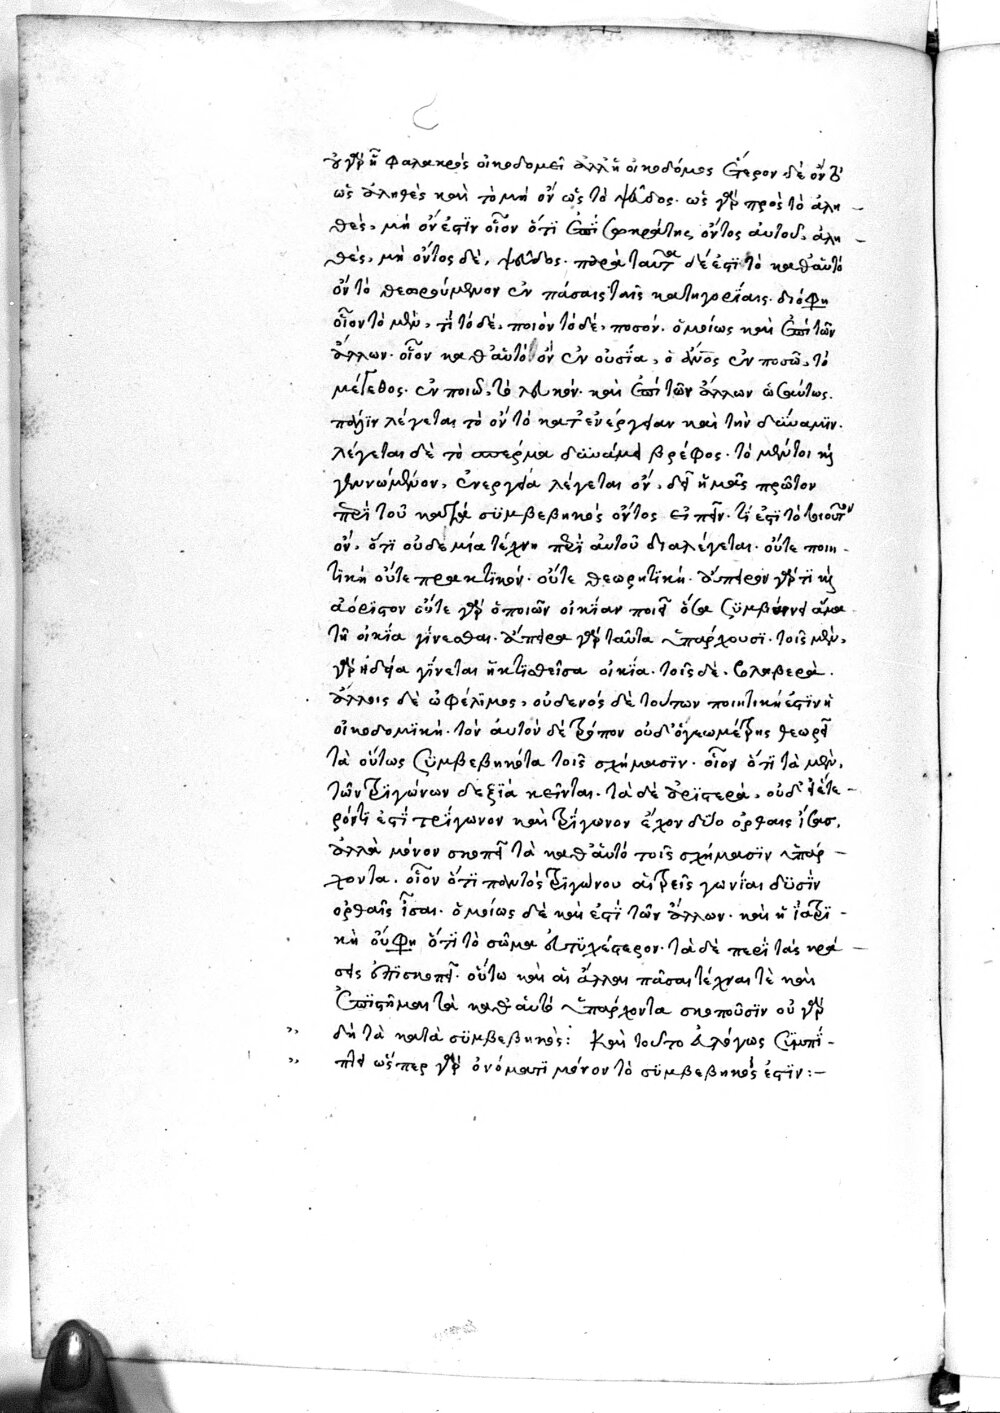 οὐ γὰρ ᾗ φαλακρὸς οἰκοδομεῖ ἀλλ' ᾗ οἰκοδόμος ἕτερον δὲ ὂν τὸ
ὡς ἀληθὲς καὶ τὸ μὴ ὂν ὡς τὸ ψεῦδος. ὡς γὰρ πρὸς τὸ ἀλη –
θὲς, μὴ ὄν ἐστϊν οἷον ὅτϊ ἐπϊ σωκράτης ὄντος αὐτοῦ, ἀλη –
θὲς, μὴ ὄντος δὲ, ψεῦδος. παρὰ ταῦτα δέ ἐστϊ τὸ καθ' αὑτὸ
ὂν τὸ θεωρούμενον ἐν πάσαις ταῖς κατηγορίαις. διό φη
οἷον τὸ μὲν, τϊ τὸ δὲ, ποιὸν τὸ δὲ, ποσόν. ὁμοίως καὶ ἐπὶ τῶν
ἄλλων. οἷον καθ' αὑτὸ ὂν ἐν οὐσίᾳ, ὁ ἄνος ἐν ποσῶ, τὸ
μέγεθος. ἐν ποιῶ, τὸ λευκόν. καὶ ἐπὶ τῶν ἄλλων ὡσαύτως.
πάλϊν λέγεται τὸ ὂν τὸ κατ' ἐνέργειαν καὶ τὴν δύναμϊν.
λέγεται δὲ τὸ σπέρμα δυνάμει βρέφος. τὸ μέντοι ἤδη
γεννώμενον, ἐνεργεία λέγεται ὄν, δεῖ ἡμᾶς πρῶτον
περὶ τοῦ κατὰ συμβεβηκὸς ὄντος εἰπεῖν. τί ἐστϊ τὸ τοιοῦτον
ὄν, ὅτϊ οὐδεμία τέχνη περὶ αὐτοῦ διαλέγεται. οὔτε ποιη –
τϊκὴ οὔτε πρακτϊκὴ. οὔτε θεωρητϊκή. ἄπειρον γάρ τϊ καὶ
ἀόρϊστον οὔτε γὰρ ὁ ποιῶν οἰκίαν ποιεῖ ὅσα συμβαίνει ἅμα
τῆ οἰκία γίνεσθαι. ἄπειρα γὰρ ταῦτα ὑπάρχουσϊ. τοῖς μὲν,
γὰρ ἡδεῖα γίνεται ἡ κτϊσθεῖσα οἰκία. τοῖς δὲ, βλαβερὰ.
ἄλλοις δὲ ὠφέλϊμος, οὐδενὸς δὲ τούτων ποιητϊκή ἐστϊν ἡ
οἰκοδομϊκή. τὸν αὐτὸν δὲ τρόπον οὐδ' ὁ γεωμέτρης θεωρεῖ
τὰ οὕτως συμβεβηκότα τοῖς σχήμασϊν. οἷον ὅτϊ τὰ μὲν,
τῶν τρϊγώνων δεξϊὰ κεῖνται. τὰ δὲ ἀρϊστερά, οὐδ' εἰ ἕτε –
ρόν τϊ ἐστϊ τρίγωνον καὶ τρίγωνον ἔχον δύο ὀρθαῖς ἴσας,
ἀλλὰ μόνον σκοπεῖ τὰ καθ' αὑτὸ τοῖς σχήμασϊν ὑπάρ –
χοντα. οἷον ὅτϊ παντὸς τρϊγώνου αἱ τρεῖς γωνίαι δυσϊν
ὀρθαῖς ἴσαι. ὁμοίως δὲ καὶ ἐπὶ τῶν ἄλλων. καὶ ἡ ἰατρϊ –
κὴ οὔ φη ὅτϊ τὸ σῶμα τὰ δὲ περὶ τὰς κρά –
σεις ἐπϊσκοπεῖ. οὕτω καὶ αἱ ἄλλαι πᾶσαι τέχναι τὲ καὶ
ἐπϊστῆμαι τὰ καθ' αὑτὸ ὑπάρχοντα σκοποῦσϊν οὐ γὰρ
δὴ τὰ κατὰ συμβεβηκός: Καὶ τοῦτο εὐλόγως συμπί –
πτει ὥσπερ γὰρ ὀνόματϊ μόνον τὸ συμβεβηκός ἐστϊν: –